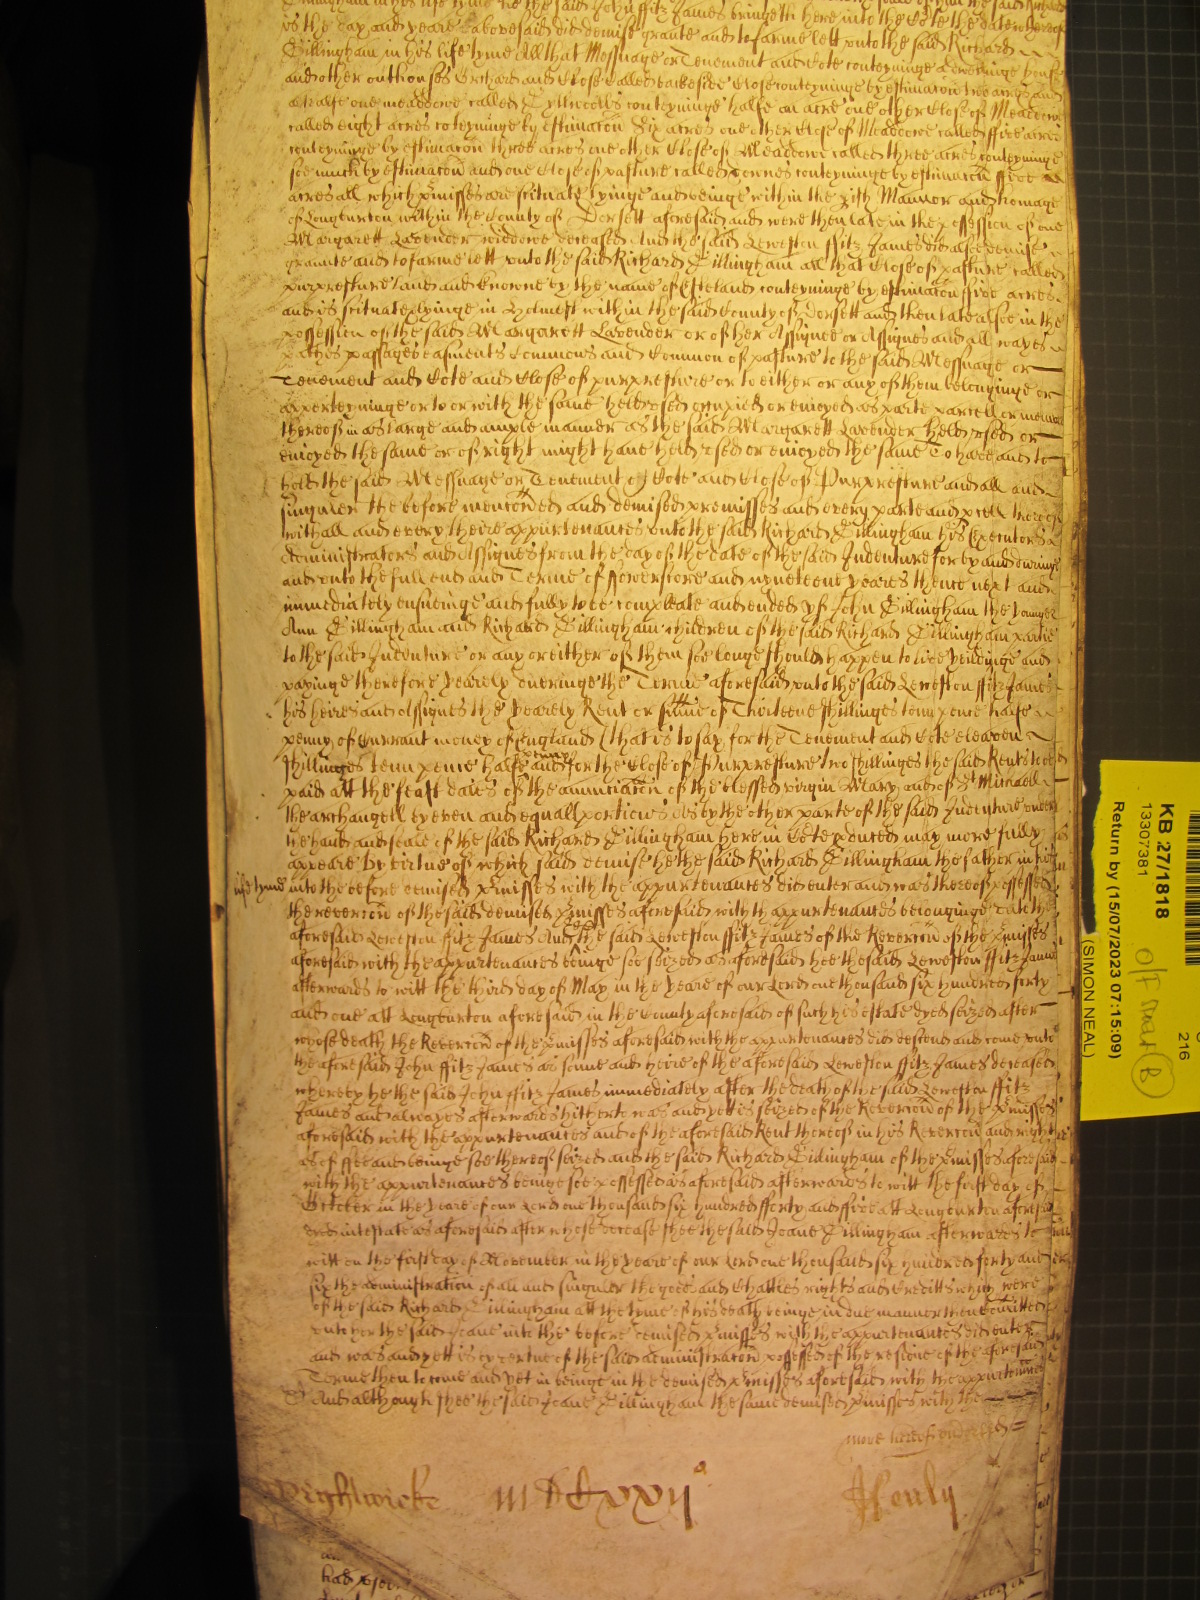 the said John ffitz James bringeth here into the Cote the date whereof
is the day and yeare abovesaid did demise graunte and to farme lett unto the said Richard
Dillingham in his life tyme All that Messuage or Tenement and Cote conteyninge a dwellinge house
and other outhouses Orchard and Close called backside Close conteyninge by estimacon two acres and
a halfe one meaddowe called conteyninge halfe an acre one other Close of Meaddowe
called eight acres conteyninge by estimacon Six acres one other Close of Meaddowe called ffive acres
conteyninge by estimacon three acres one other Close of Meaddowe called three acres conteyninge
soe much by estimacon and one Close of pasture called conteyninge by estimacon ffive
acres all which pmisses are scituate lyinge and beinge within the Mannor and homage
of Longburton within the County of Dorsett aforesaid and were then late in the possession of one
Margarett Lavender widdowe deceased And the said Leweston ffitz James did alsoe demise
graunte and to farme lett unto the said Richard Dillingham all that Close of pasture called
purpresture land and knowne by the name of conteyninge by estimacon ffive acres
and is scituate lyinge in Holnest within the said County of Dorsett and then late alsoe in the
possession of the said Margarett Lavender or of her Assignee or Assignes and all wayes
pathes passages easments Commons and Common of pasture to the said Messuage or
Tenement and Cote and Close of purpresture or to either or any of them belonginge or
apperteyninge or to or with the same held used occupied or enioyed as parte parcell or member
thereof in as large and ample manner as the said Margarett Lavender held used or
enioyed the same or of right might have held used or enioyed the same To have and to
hold the said Messuage or Tenement Cote and Close of Purpresture and all and
singuler the before mencioned and demised premisses and every parte and pcell thereof
with all and every theire appurtenances unto the said Richard Dillingham his Executors
Administrators and Assignes from the day of the date of the said Indenture for by and duringe
and unto the full end and Terme of ffowerscore and nyneteene yeares thence next and
immediately ensueinge and fully to be compleate and ended yf John Dillingham the younger
Ann Dillingham and Richard Dillingham children of the said Richard Dillingham partie
to the said Indenture or any or either of them soe longe should happen to live yeildinge and
payinge therefore yearely dueringe the Terme aforesaid unto the said Leweston ffitz James
his heires and Assignes the yearely Rent or summe of Thirteene shillinges tenn pence halfe
penny of Currant money of England (that is to say for the Tenement and Cote eleaven
shillinges tenn pence halfe penny and for the Close of Purpresture two shillinges the said Rents to be
paid att the feast daies of the annunciacon of the blessed virgin Mary and of St Michaell
the archangell by even and equall portions As by the other parte of the said Indenture under
the hand and seale of the said Richard Dillingham here in Cote pduced may more fully
appeare By vertue of which said demise he the said Richard Dillingham the father in his
life tyme into the before demised pmisses with the appurtenances did enter and was thereof possessed
the reverc͠on of the said demised pmisses aforesaid with thappurtenances belonginge to the
aforesaid Leweston ffitz James And the said Leweston ffitz James of the Reverc͠on of the pmisses
aforesaid with the appurtenances beinge soe seized as aforesaid hee the said Leweston ffitz James
afterwards to witt the third day of May in the yeare of our Lord one thousand six hundred forty
and one att Longburton aforesaid in the County aforesaid of such his estate dyed seized after
whose death the Reverc͠on of the pmisses aforesaid with the appurtenances did descend and come unto
the aforesaid John ffitz James as sonne and heire of the aforesaid Leweston ffitz James deceased
whereby he the said John ffitz James immediately after the death of the said Leweston ffitz
James and alwayes afterwards hitherto was and yett is seized of the Reverc͠on of the pmisses
aforesaid with the appurtenances and of the aforesaid Rent thereof in his Reverc͠on and right
as of ffee and beinge soe thereof seized and the said Richard Dillingham of the pmisses aforesaid
with the appurtenances beinge soe possessed as aforesaid afterwards to witt the first day of
October in the yeare of our Lord one thousand six hundred fforty and five att Longburton aforesaid
dyed intestate as aforesaid after whose decease shee the said Joane Dillingham afterwards to
witt on the first day of November in the yeare of our Lord one thousand six hundred forty and
six the administration of all and singuler the goods and Chattles rights and Creditts which were
of the said Richard Dillingham att the tyme of his death beinge in due manner then comitted
unto her the said Joane into the before demised pmisses with the appurtenances did enter
and was and yett is by vertue of the said administracon possessed of the residue of the aforesaid
Terme then to come and yet in beinge in the demised pmisses aforesaid with the appurtenances
And although shee the said Joane Dillingham the same demised pmisses with the
more hereof
MDCxxij
Henly
had
KB 27/1818
13307381
Return by (15/07/2023 07:15:09)
(SIMON NEAL)
216
B